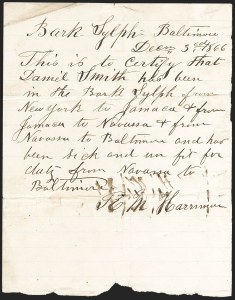 Bark Sylph Baltimore
Decm 3rd 1866
This is to certify that
Daniel Smith has been
in the Bark Sylph from
New York to Jamaca & from
Jamaca to Navassa & from
Navassa to Baltimore and has
been sick and un fit for
duty from Navassa to
Baltimore
Harriman